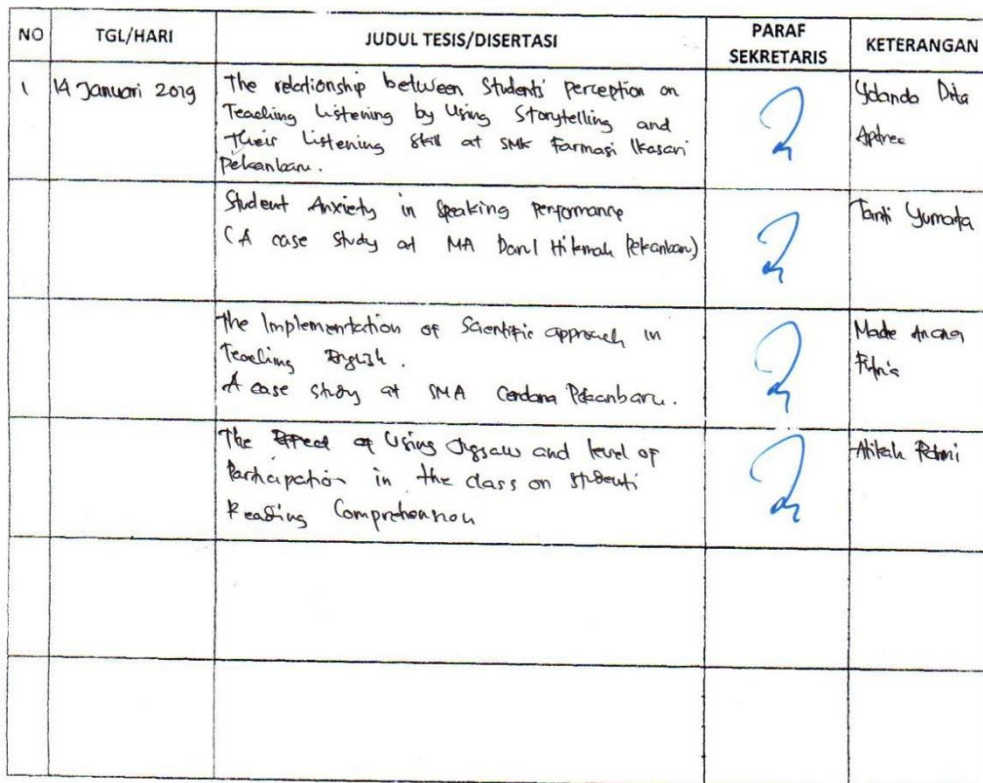 NO TGL/HARI JUDUL TESIS/DISERTASI PARAF SEKRETARIS KETERANGAN
1 14 Januari 2019 The relationship between Students' perception on Yolanda Dita
Teaching Listening by Using Storytelling and
Their Listening Skill at SMK Farmasi Ikasari
Pekanbaru.
Student Anxiety in Speaking Performance Tanti Yumata
(A case study at MA Darul Hikmah Pekanbaru)
The Implementation of Scientific approach in Made
Teaching English.
A case study at SMA Cendana Pekanbaru.
The Effect of Using Jigsaw and level of Atikah
Participation in the class on students
Reading Comprehension